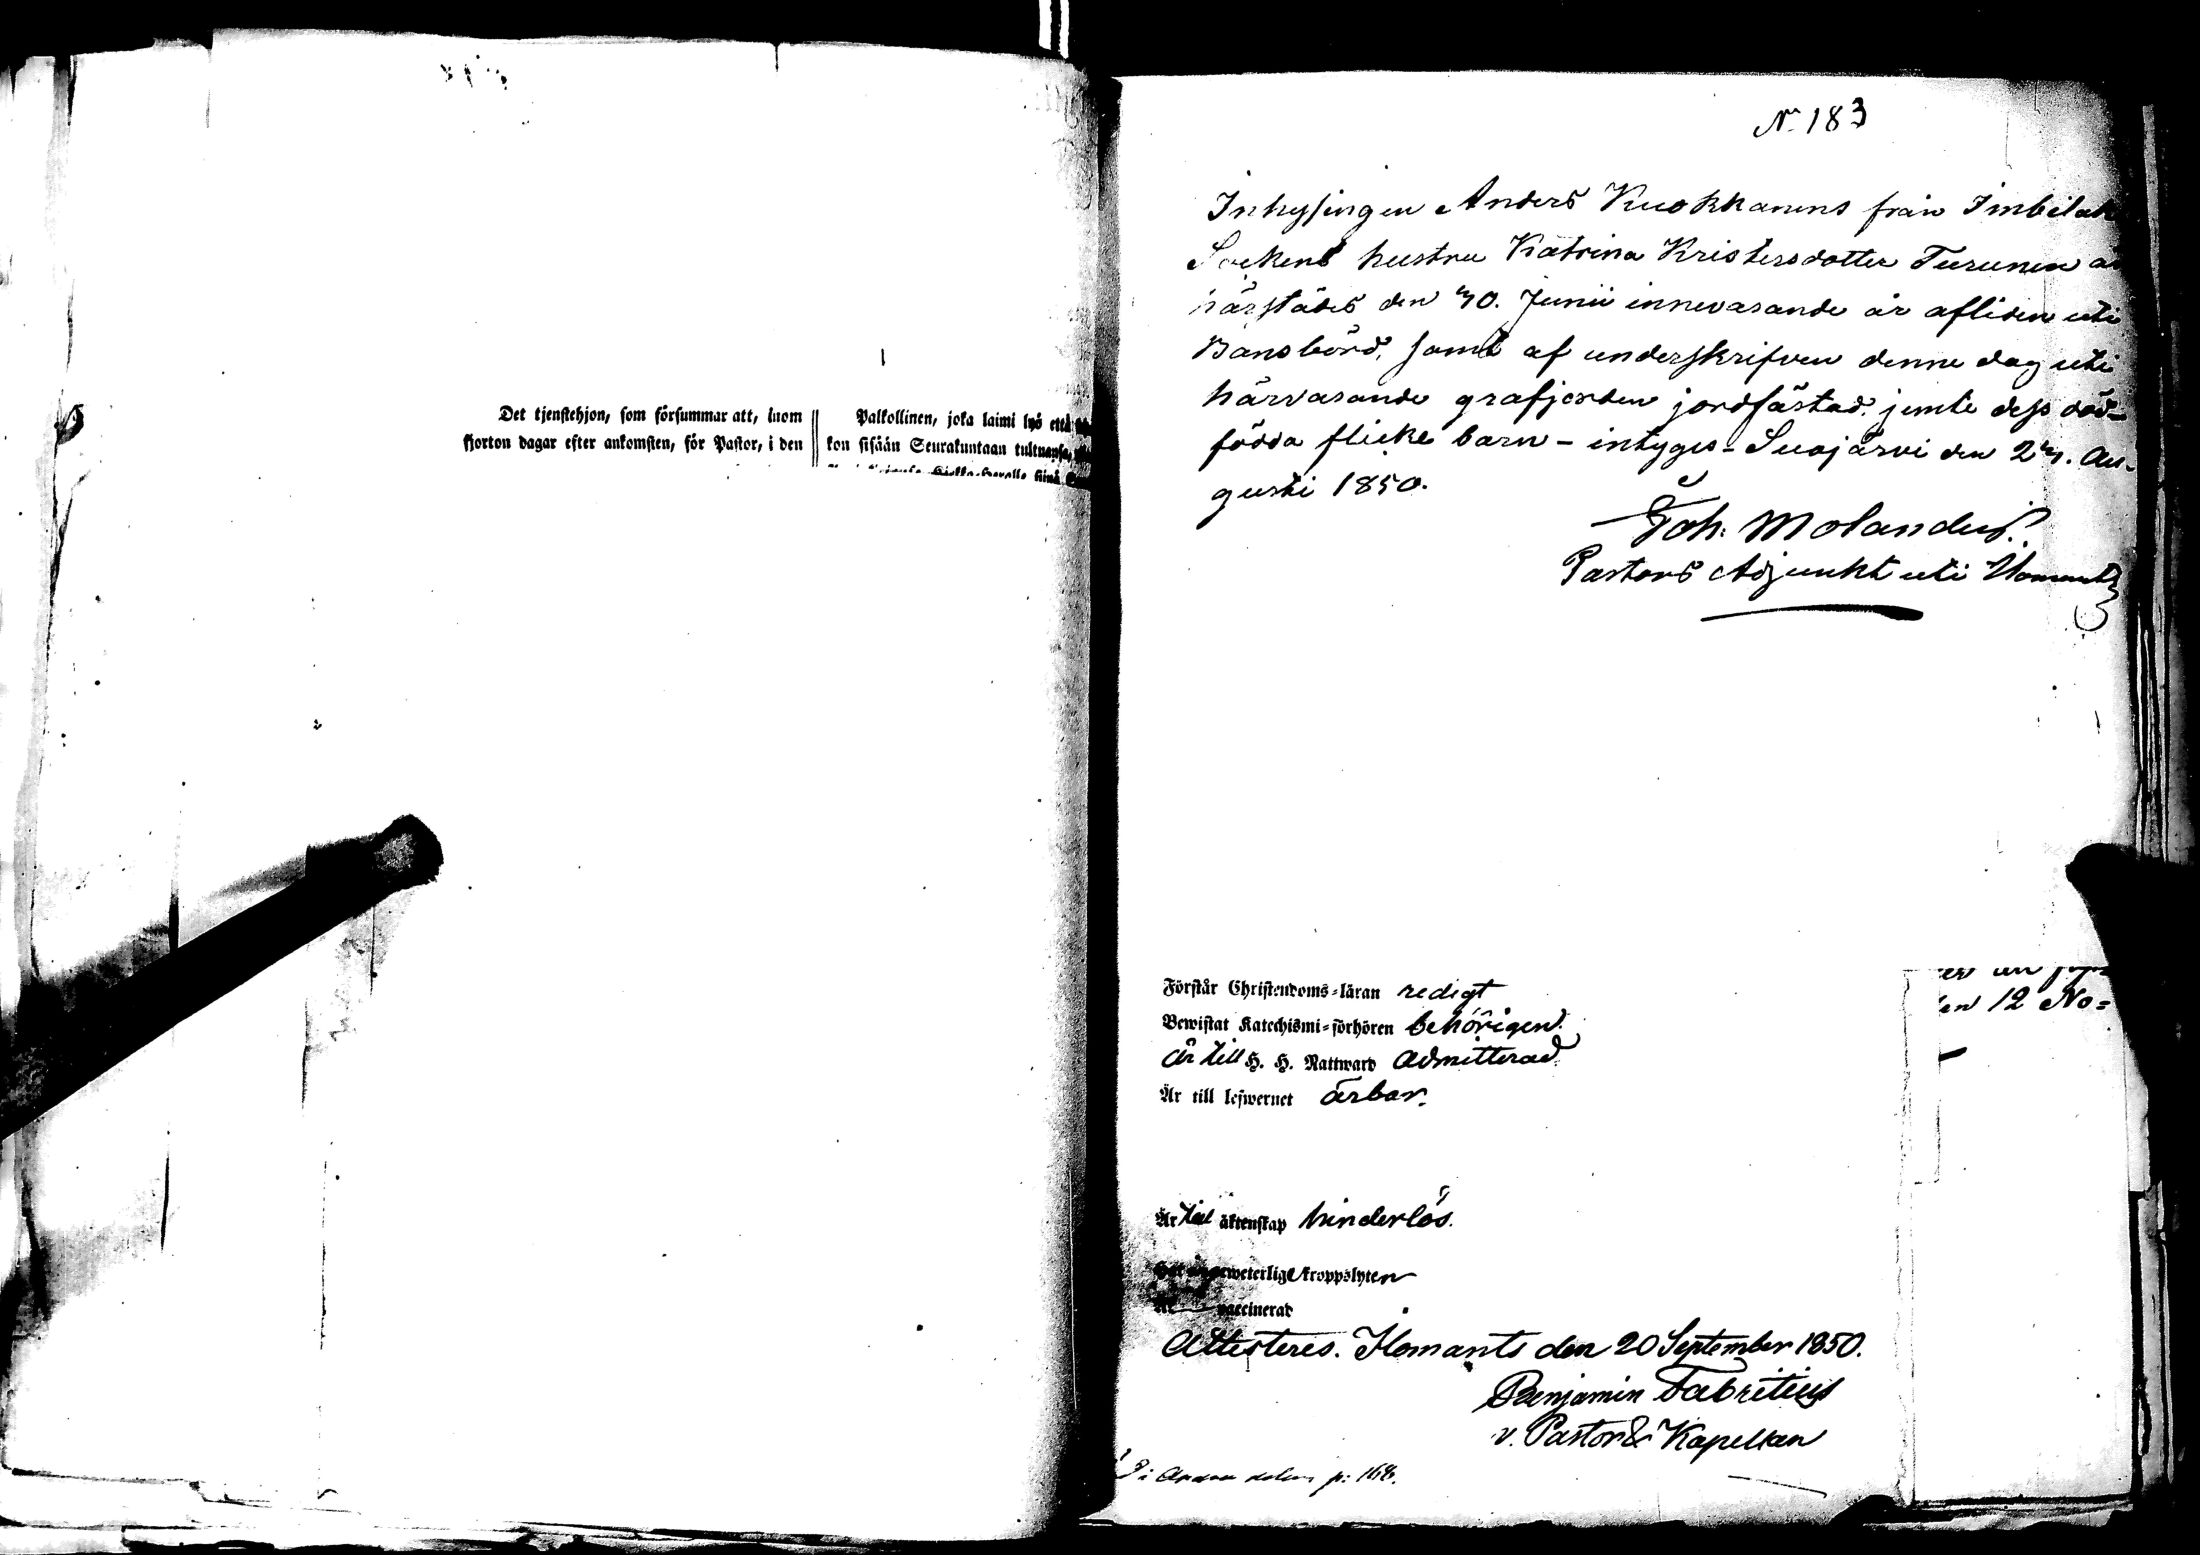 Det tjenstehjon, som försummar att, inom
fjorton dagar efter ankomsten, för Pastor, i den
Palkollinen, joka laimi lyö että
kon sisään Seurakuntaan tultuansa,
N. 183
Inhysingen Anders Kuokkanens från Imbilak
Sockens hustru Katrina Kristersdotter Turunen
härstädes den 30. Junii innevarande år afliden uti
Barnsbörd, samt af underskrifven denne dag uti
härvarande grafjorden jordfästad, jemte dess död-
födda flicke barn - intyges - Suojärvi den 23. Au-
gusti 1850.
Joh: Molander.
Pastors Adjunkt uti Ilomants
Förstår Christendoms-läran redigt
Bewistat Katechismi-förhören behörigen.
Är till H. H. Nattward admitterad.
Är till lefwernet ärbar.
er
den 12 No=
Är till äktenskap hinderlös.
kroppslyten
vaccinerad
Attesteres. Ilomants den 20 September 1850.
Benjamin Fabritius
v. Pastor & Kapellan
i Andra delen p: 168.